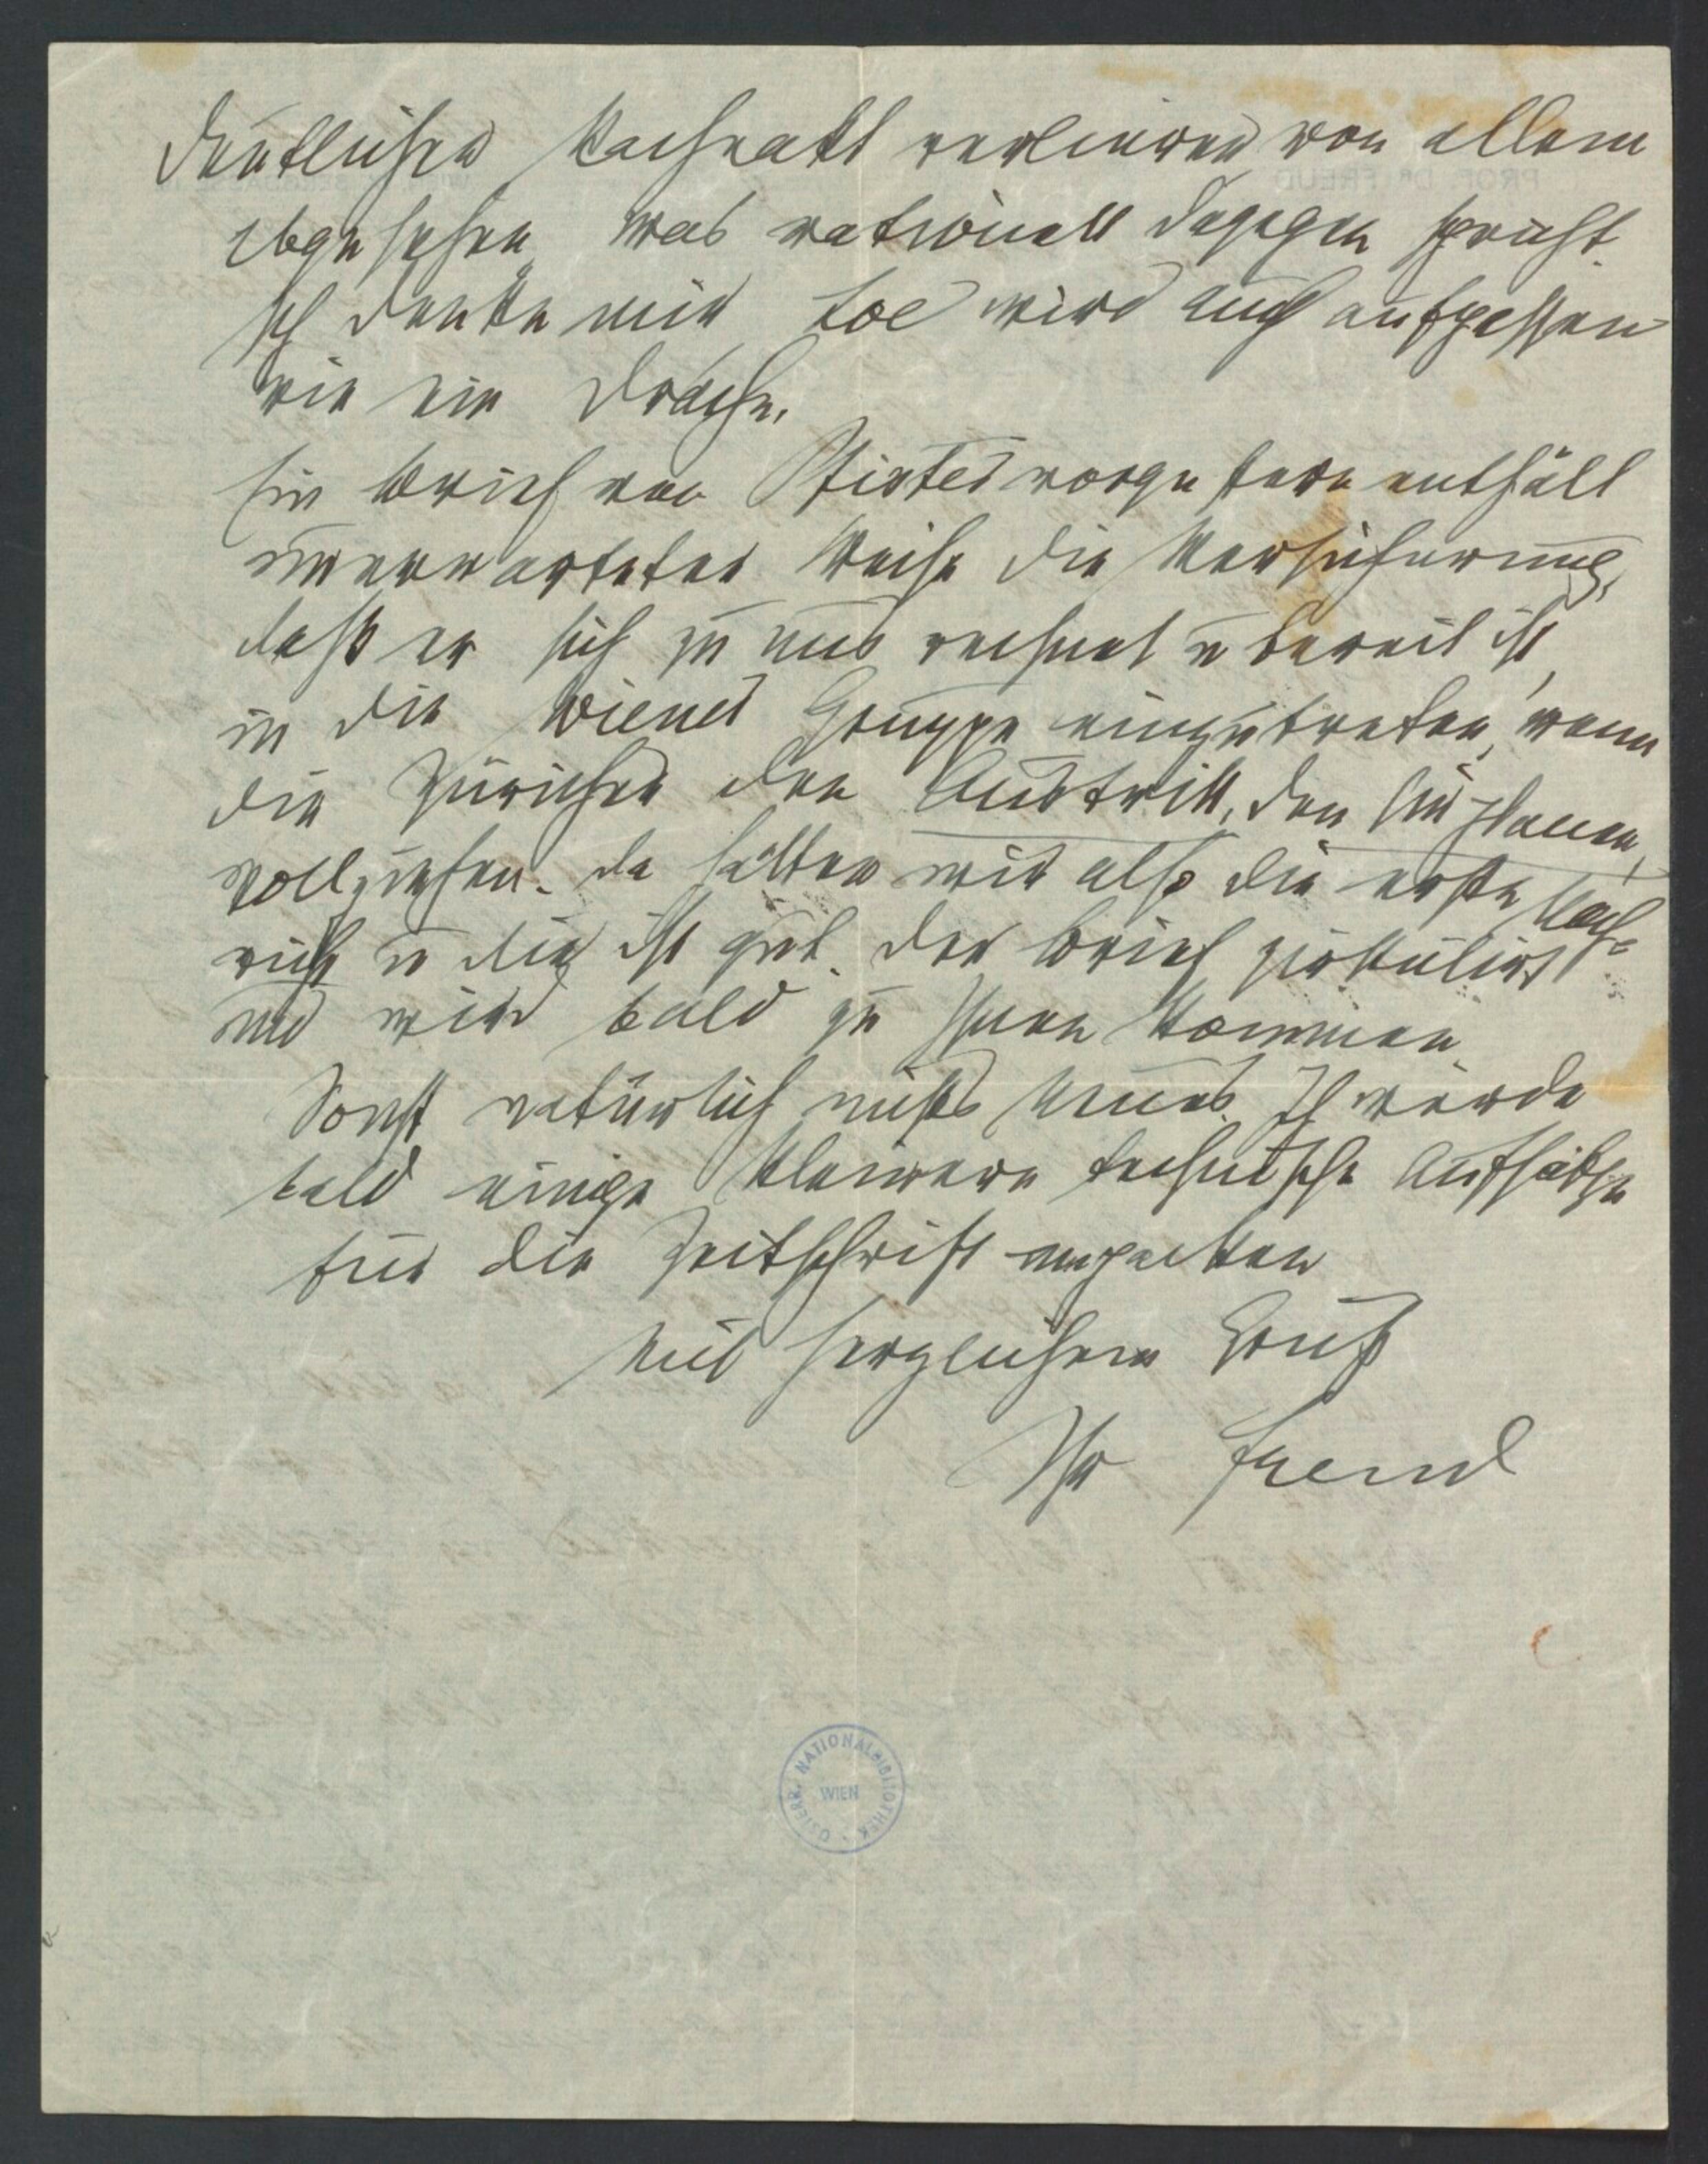 deutlichen verlieren von allem
abgesehen, was rationell dagegen spricht.
Ich denke mir, Loë wird auch aufpassen
wie ein Drache.
Ein Brief von Pfister vorgestern enthält
unerwarteter Weise die Versicherung,
daß er sich zu uns rechnet u bereit ist,
in die Wiener Gruppe einzutreten, wenn
die Züricher den Austritt, den sie planen,
vollziehen. Da hätten wir also die erste Nach-
richt u die ist gut. Der Brief zirkulirt
und wird bald zu Ihnen kommen.
Sonst natürlich nichts Neues. Ich werde
bald einige kleinere technische Aufsätze
für die Zeitschrift anpacken
Mit herzlichem Gruß
Ihr Freud
ÖSTERR. NATIONALBIBLIOTHEK
WIEN